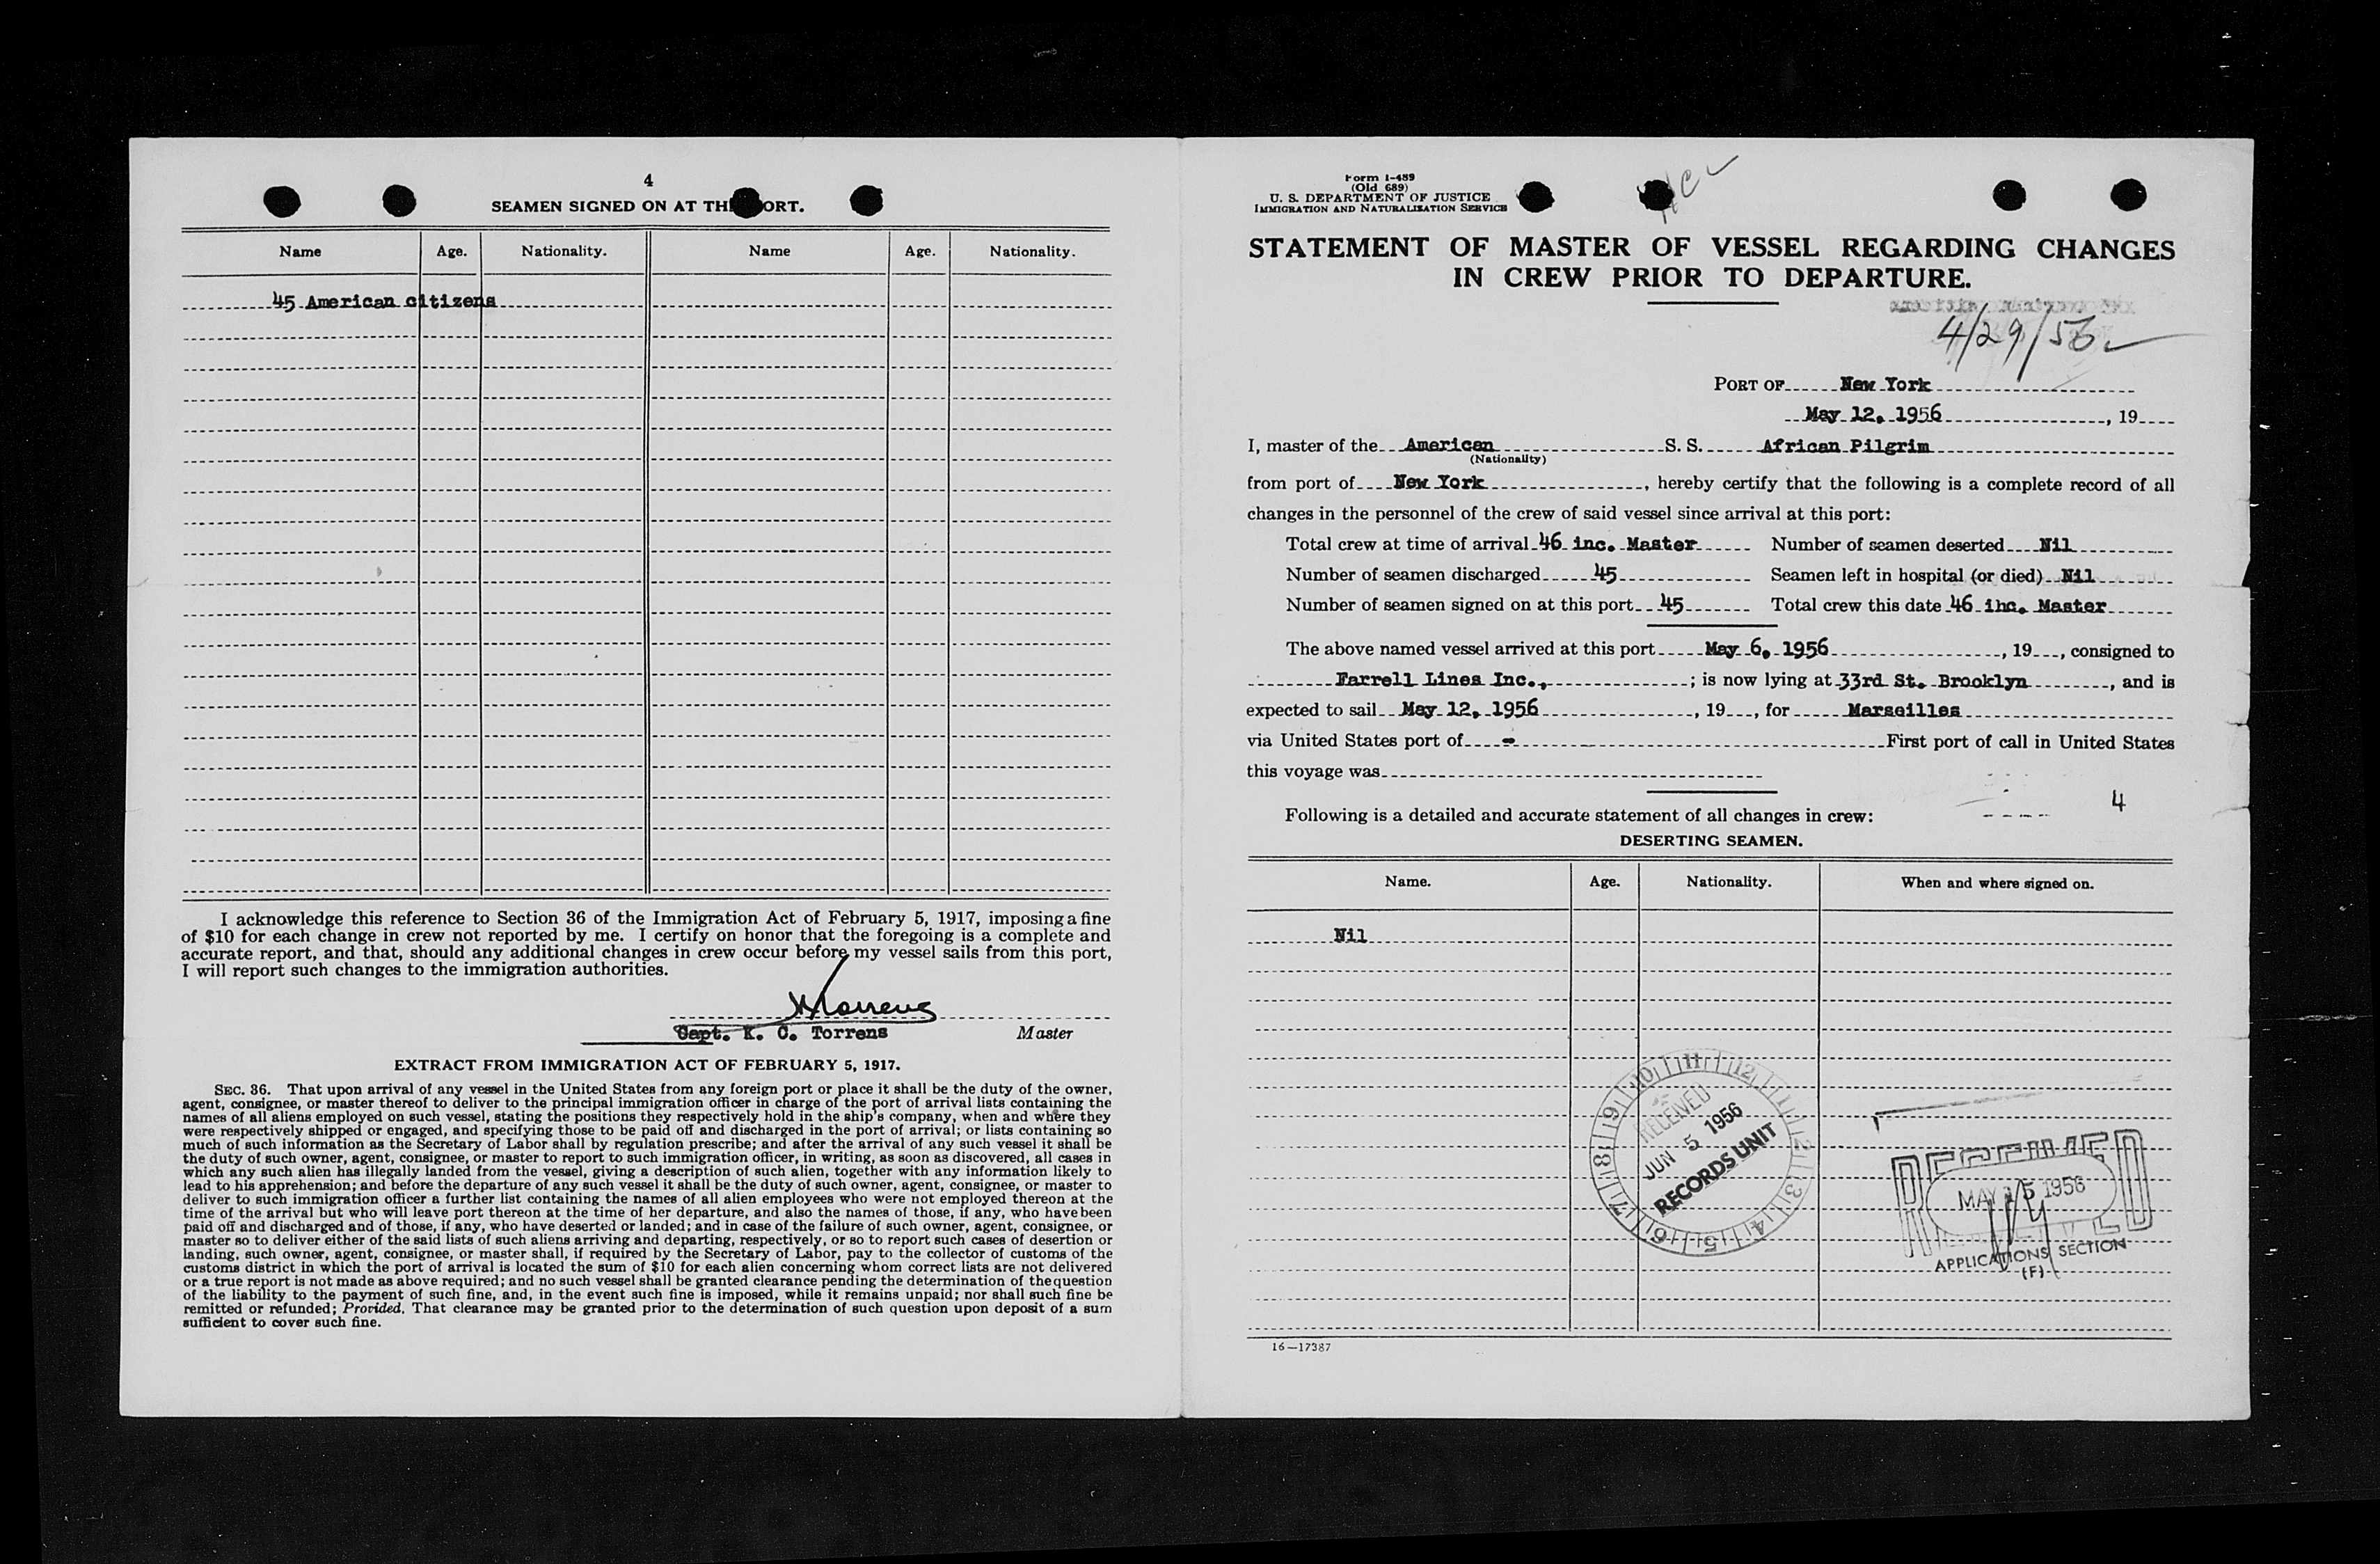 4
SEAMEN SIGNED ON AT TH ORT.
Name Age. Nationality. Name Age. Nationality.
45 American citizens
I acknowledge this reference to Section 36 of the Immigration Act of February 5, 1917, imposing a fine
of $10 for each change in crew not reported by me. I certify on honor that the foregoing is a complete and
accurate report, and that, should any additional changes in crew occur before my vessel sails from this port,
I will report such changes to the immigration authorities.
Capt. K. C. Torrens Master
EXTRACT FROM IMMIGRATION ACT OF FEBRUARY 5, 1917.
SEC. 36. That upon arrival of any vessel in the United States from any foreign port or place it shall be the duty of the owner,
agent, consignee, or master thereof to deliver to the principal immigration officer in charge of the port of arrival lists containing the
names of all aliens employed on such vessel, stating the positions they respectively hold in the ship's company, when and where they
were respectively shipped or engaged, and specifying those to be paid off and discharged in the port of arrival; or lists containing so
much of such information as the Secretary of Labor shall by regulation prescribe; and after the arrival of any such vessel it shall be
the duty of such owner, agent, consignee, or master to report to such immigration officer, in writing, as soon as discovered, all cases in
which any such alien has illegally landed from the vessel, giving a description of such alien, together with any information likely to
lead to his apprehension; and before the departure of any such vessel it shall be the duty of such owner, agent, consignee, or master to
deliver to such immigration officer a further list containing the names of all alien employees who were not employed thereon at the
time of the arrival but who will leave port thereon at the time of her departure, and also the names of those, if any, who have been
paid off and discharged and of those, if any, who have deserted or landed; and in case of the failure of such owner, agent, consignee, or
master so to deliver either of the said lists of such aliens arriving and departing, respectively, or so to report such cases of desertion or
landing, such owner, agent, consignee, or master shall, if required by the Secretary of Labor, pay to the collector of customs of the
customs district in which the port of arrival is located the sum of $10 for each alien concerning whom correct lists are not delivered
or a true report is not made as above required; and no such vessel shall be granted clearance pending the determination of the question
of the liability to the payment of such fine, and, in the event such fine is imposed, while it remains unpaid; nor shall such fine be
remitted or refunded; Provided, That clearance may be granted prior to the determination of such question upon deposit of a sum
sufficient to cover such fine.
Form I-489
(Old 689)
U. S. DEPARTMENT OF JUSTICE
IMMIGRATION AND NATURALIZATION SERVICE
STATEMENT OF MASTER OF VESSEL REGARDING CHANGES
IN CREW PRIOR TO DEPARTURE.
4/29/56
PORT OF New York
May 12, 1956, 19
I, master of the American S. S. African Pilgrim
(Nationality)
from port of New York, hereby certify that the following is a complete record of all
changes in the personnel of the crew of said vessel since arrival at this port:
Total crew at time of arrival 46 inc. Master Number of seamen deserted Nil
Number of seamen discharged 45 Seamen left in hospital (or died) Nil
Number of seamen signed on at this port 45 Total crew this date 46 ihc. Master
The above named vessel arrived at this port May 6, 1956, 19, consigned to
Farrell Lines Inc.,; is now lying at 33rd St. Brooklyn, and is
expected to sail May 12, 1956, 19, for Marseilles
via United States port of - First port of call in United States
this voyage was
4
Following is a detailed and accurate statement of all changes in crew:
DESERTING SEAMEN.
Name. Age. Nationality. When and where signed on.
Nil
10 11 12 1 2 3 4 5 6 7 8 9
RECEIVED
JUN 5 1956
RECORDS UNIT
RECEIVED
MAY 15 1956
APPLICATIONS SECTION
(F)
16—17387